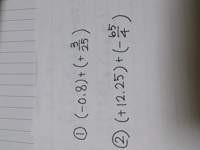 ① (-0.8)+(+3/25)
② (+12.25)+(-65/4)